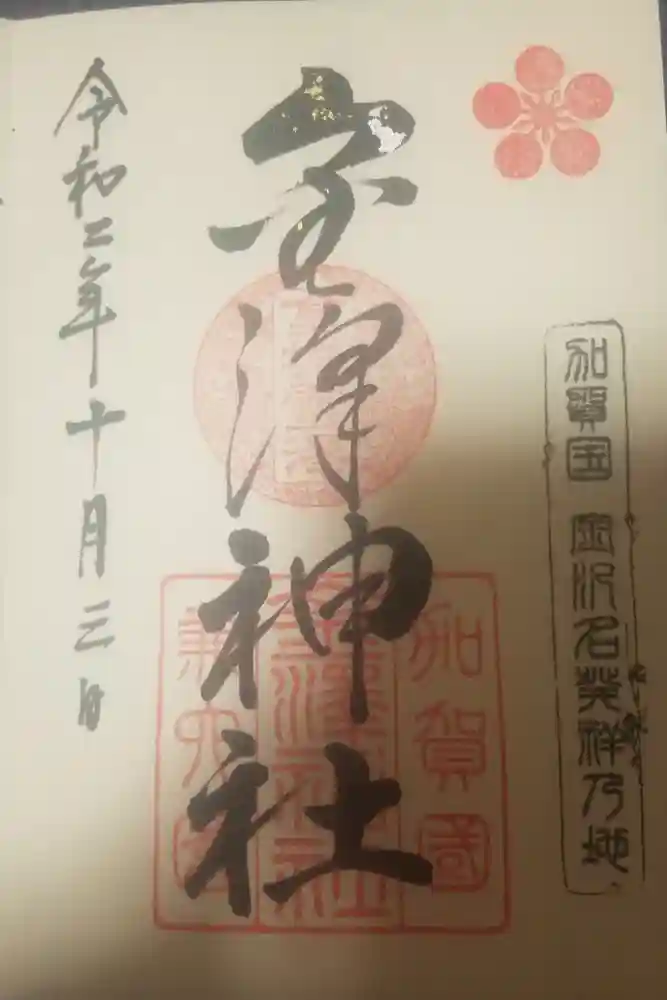 加賀国 金沢名発祥乃地
金澤神社
加賀國
金澤神社
兼六園
令和二年十月三日